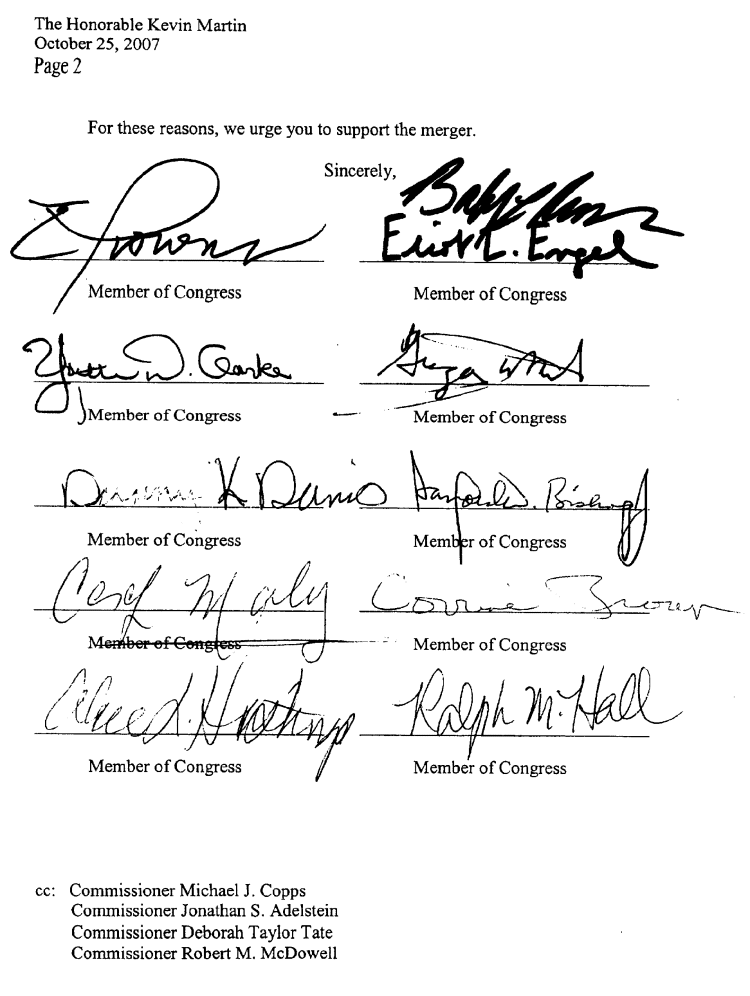 The Honorable Kevin Martin
October 25, 2007
Page 2
For these reasons, we urge you to support the merger.
Sincerely,
Eliot L. Engel
Member of Congress
Member of Congress
Yvette D. Clarke
Member of Congress
Member of Congress
Danny K Davis
Sanford D. Bishop
Member of Congress
Member of Congress
Corrine Brown
Member of Congress
Member of Congress
Alcee L. Hastings
Ralph M. Hall
Member of Congress
Member of Congress
cc: Commissioner Michael J. Copps
Commissioner Jonathan S. Adelstein
Commissioner Deborah Taylor Tate
Commissioner Robert M. McDowell